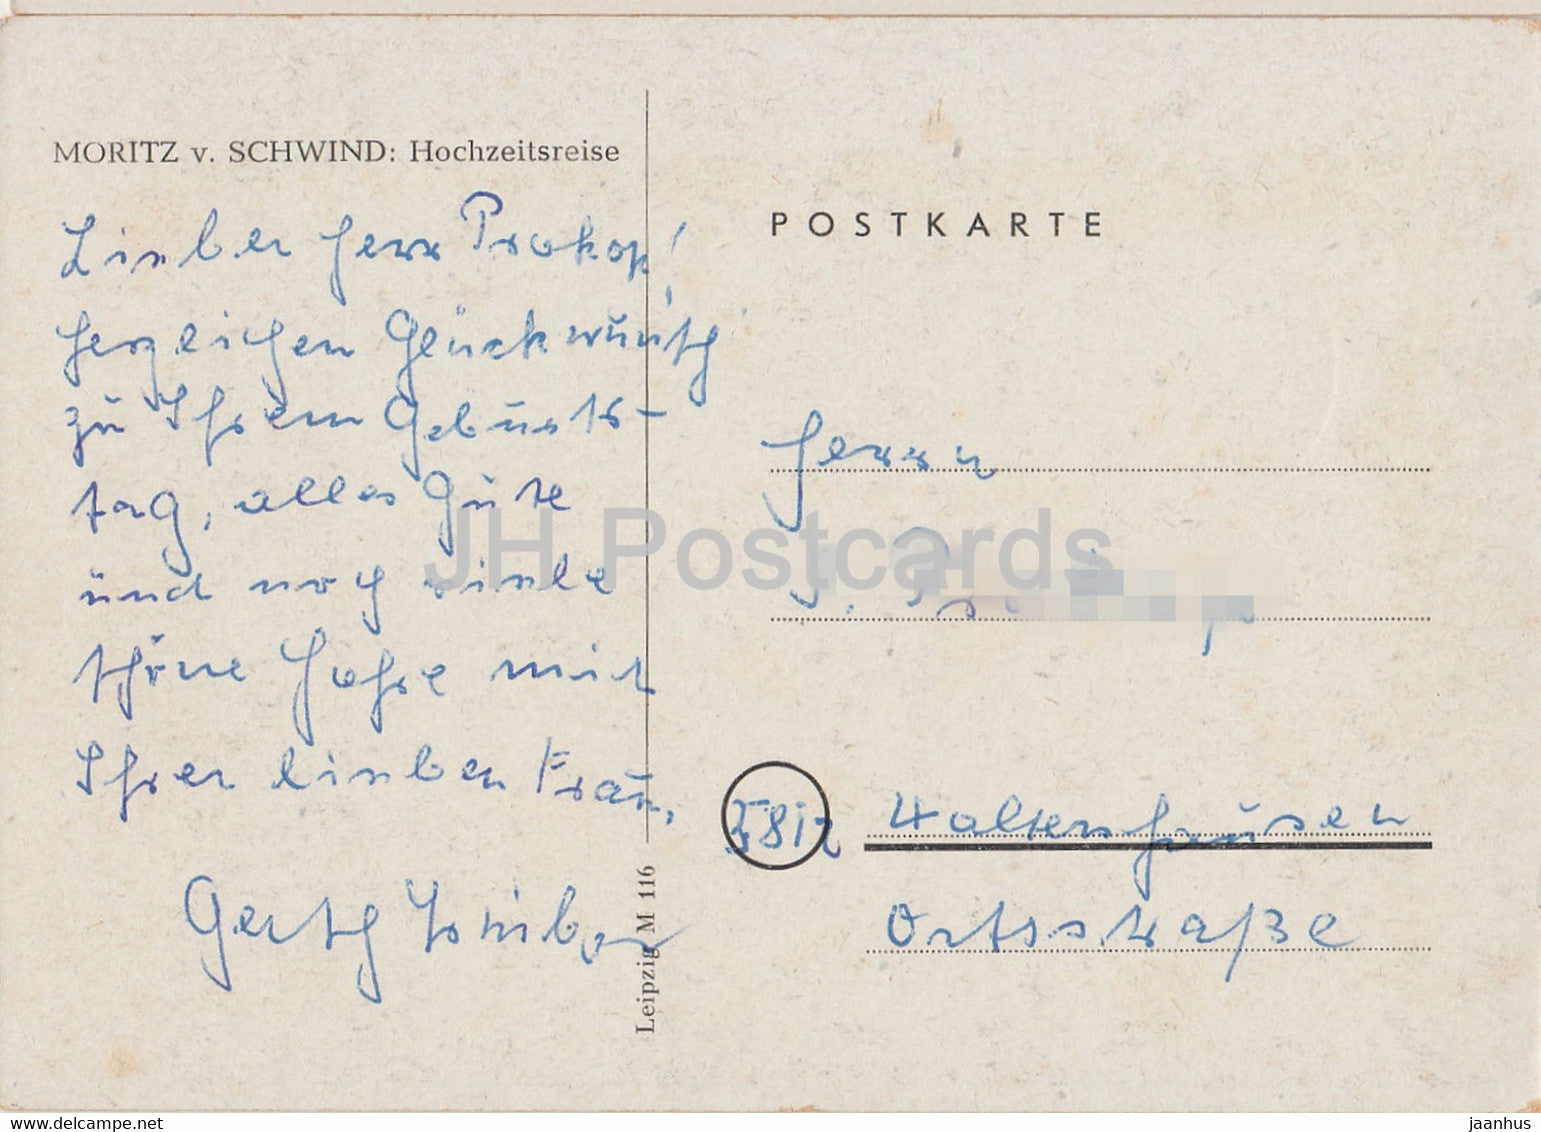 MORITZ v. SCHWIND: Hochzeitsreise
Lieber Herr Prokop!
herzlichen Glückwunsch
zu Ihrem Geburts-
tag, alles Gute
und noch viele
schöne Jahre mit
Ihrer lieben Frau,
Leipzig M 116
POSTKARTE
Herrn
5812 Waltershausen
Ortsstraße
JH Postcards
www.delcampe.net
jaanhus